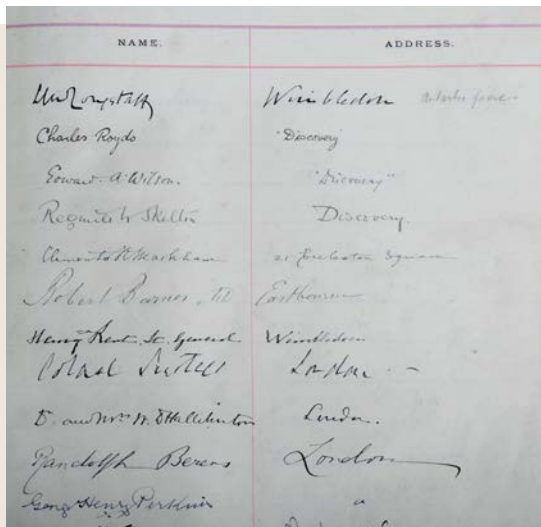 NAME. ADDRESS.
Longstaff Wimbledon
Charles Royds "Discovery
Edward. A. Wilson. "Discovery"
Reginald W Skelton Discovery.
Clements R Markham 21 Eccleston Square
Robert Barnes, Eastbourne
Henry Kent. Lt. General Wimbledon
Colonel London
D. and Mrs W. London.
Randolph Berens London
George Henry Perkins "